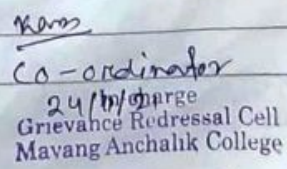 Co-ordinator
In/charge
Grievance Redressal Cell
Mayang Anchalik College